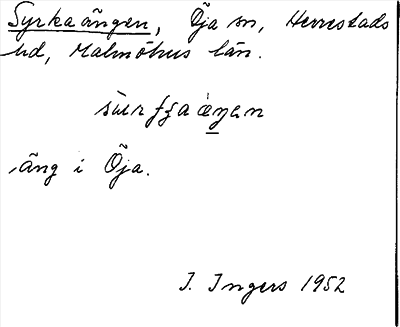 Syrkaängen, Öja sn, Herrestads
hd, Malmöhus län.
äng i Öja.
I. Ingers 1952